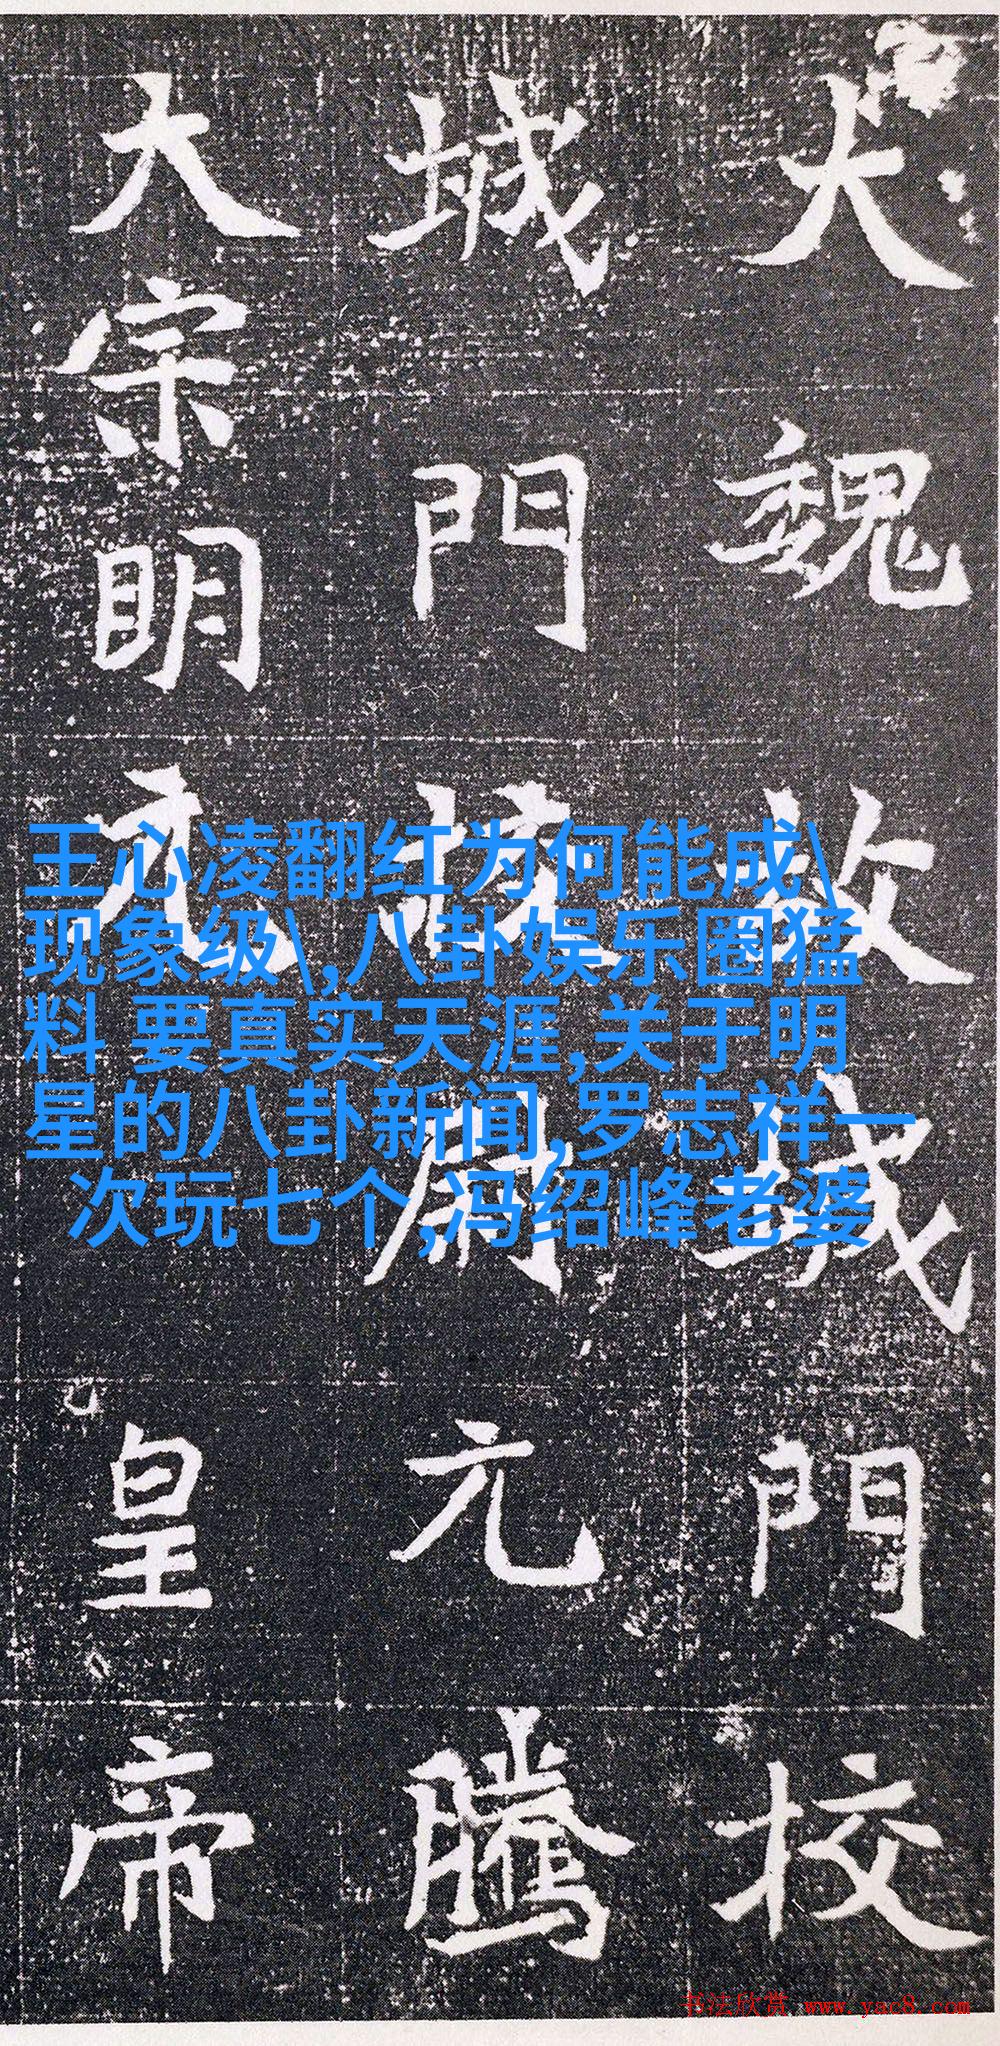 大魏故城門校
城門校尉元騰
大宗明元皇帝
王心凌翻红为何能成\
现象级\,八卦娱乐圈猛
料 要真实天涯,关于明
星的八卦新闻,罗志祥一
次玩七个,冯绍峰老婆
书法欣赏 www.yac8.com